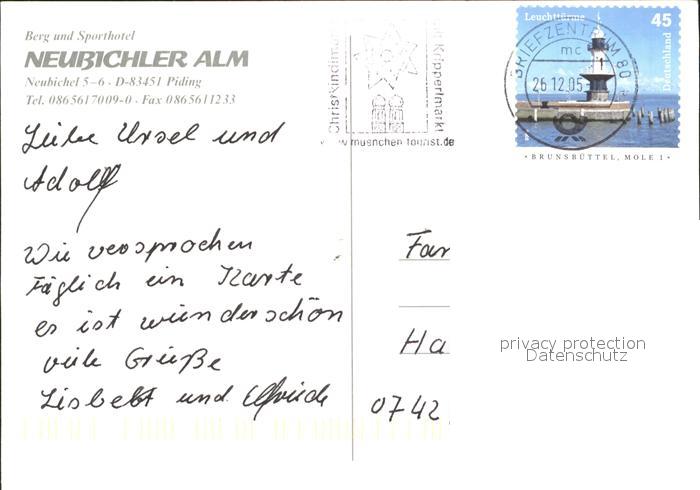 Berg und Sporthotel
NEUBICHLER ALM
Neubichel 5-6 · D-83451 Piding
Tel. 0865617009-0 · Fax 0865611233
Liebe Ursel und
Adolf
Wie versprochen
Täglich ein Karte
es ist wunderschön
viele Grüße
Lisbebt und Elfriede
Christkindlmarkt
mit Kripperlmarkt
www.muenchen-tourist.de
BRIEFZENTRUM 80
mc
26.12.05
Leuchttürme
45
Deutschland
· BRUNSBÜTTEL, MOLE 1 ·
Fam
Ha
0742
privacy protection
Datenschutz